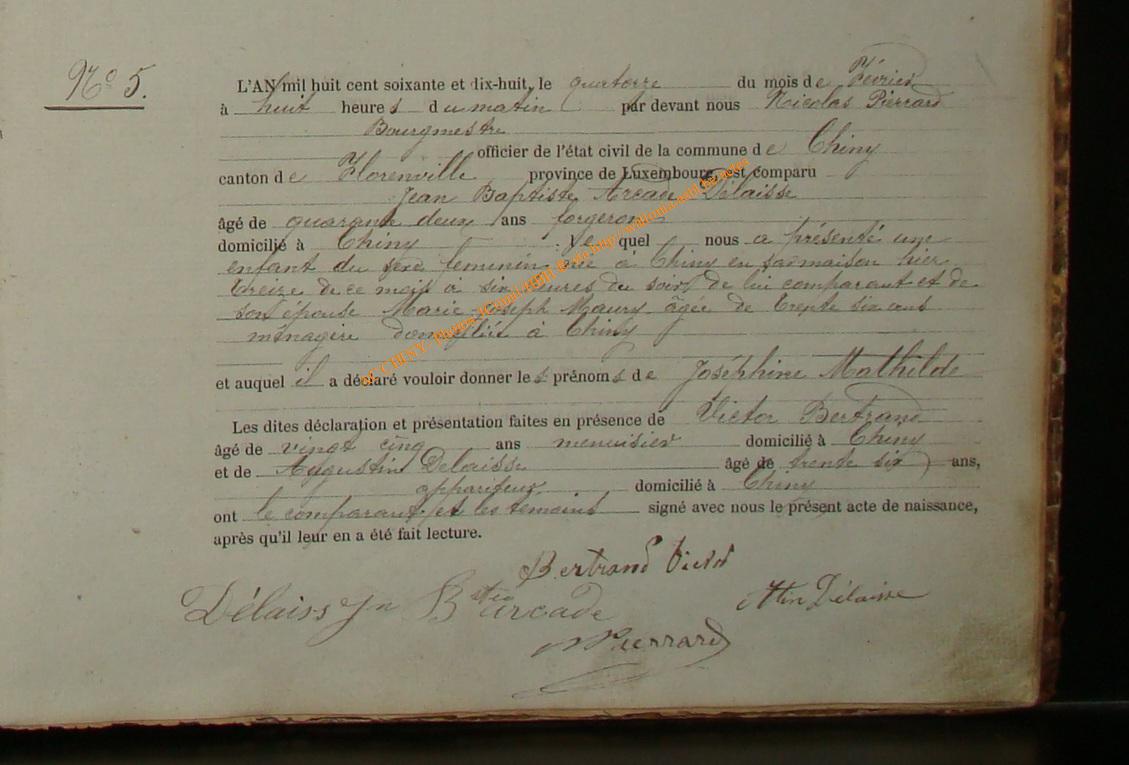 N° 5.
L'AN mil huit cent soixante et dix-huit, le quatorze du mois de Février
à huit heures du matin par devant nous Nicolas Pierrard
Bourgmestre
officier de l'état civil de la commune de Chiny
canton de Florenville province de Luxembourg, est comparu
Jean Baptiste Arcade Délaisse
âgé de quarante deux ans forgeron
domicilié à Chiny le quel nous a présenté une
enfant du sexe femenin née à Chiny en sa maison hier
treize de ce mois à six heures du soir, de lui comparant et de
son épouse Marie Joseph Maury âgée de trente six ans
ménagère domiciliée à Chiny
et auquel il a déclaré vouloir donner les prénoms de Joséphine Mathilde
Les dites déclaration et présentation faites en présence de Victor Bertrand
âgé de vingt cinq ans menuisier domicilié à Chiny
et de Augustin Delaisse âgé de trente six ans,
appariteur domicilié à Chiny
ont le comparant et les temoins signé avec nous le présent acte de naissance,
après qu'il leur en a été fait lecture.
Bertrand Victor
Délaiss Jn Bstte arcade
Atin Délaisse
NPierrard